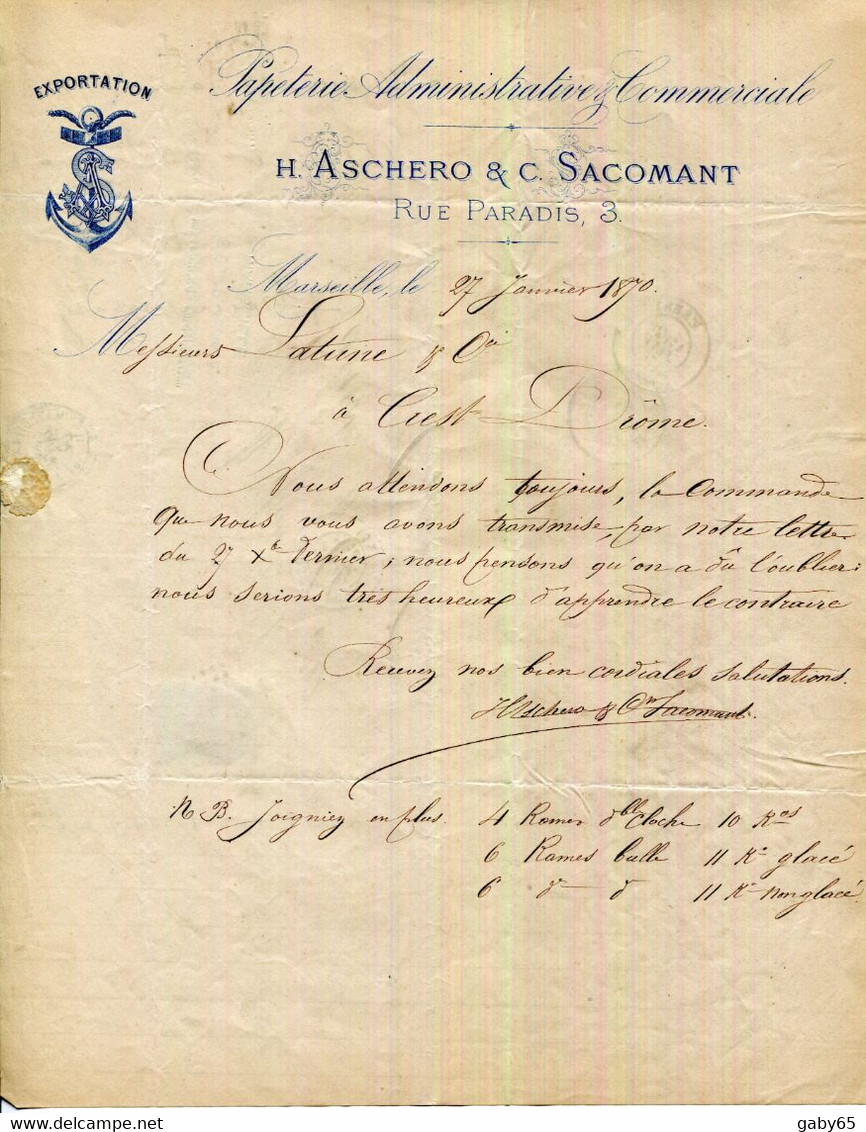 EXPORTATION
Papeterie Administrative & Commerciale
H. ASCHERO & C. SACOMANT
RUE PARADIS, 3.
Marseille, le 27 Janvier 1870.
Messieurs Latune & Cie
à Crest Drôme.
Nous attendons toujours, la Commande
que nous vous avons transmise, par notre lettre
du 27 Xbre dernier; nous pensons qu'on a dû l'oublier;
nous serions très heureux d'apprendre le contraire
Recevez nos bien cordiales salutations.
HAschero & Cin Sacomant.
N B. Joigniez en plus. 4 Rames dble Cloche 10 Kos
6 Rames bulle 11 Ko glacé
6 do do 11 Ko non glacé.
delcampe.net
gaby65